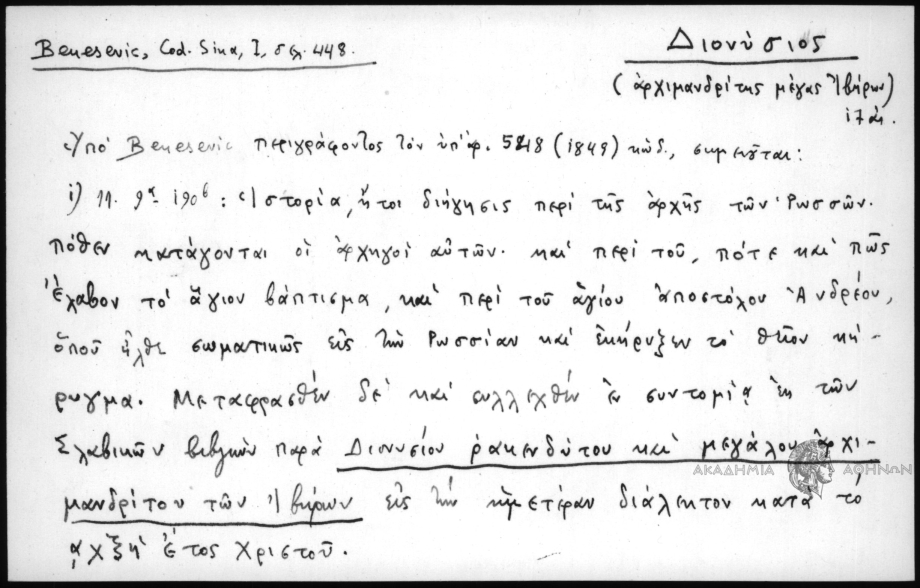 Benesevic, Cod. Sina, I, σελ. 448.
Διονύσιος
(ἀρχιμανδρίτης μέγας Ἰβήρων)
17 αι.
Ὑπό Benesevic περιγράφοντος τὸν ὑπ' ἀρ. 548 (1849) κώδ., σημειοῦται:
1) 11. 9α - 190β: Ἱστορία, ἤτοι διήγησις περί τῆς ἀρχῆς τῶν Ρωσσῶν.
πόθεν κατάγονται οἱ ἀρχηγοί αὐτῶν. καί περί τοῦ, πότε καί πῶς
ἔλαβον τό ἅγιον βάπτισμα, καί περί τοῦ ἁγίου ἀποστόλου Ἀνδρέου,
ὅπου ἦλθε σωματικῶς εἰς τήν Ρωσσίαν καί ἐκήρυξεν τό θεῖον κή-
ρυγμα. Μεταφρασθέν δέ καί συλλεχθέν ἐν συντομίᾳ ἐκ τῶν
Σλαβικῶν βιβλίων παρά Διονυσίου ῥακενδύτου καί μεγάλου ἀρχι-
μανδρίτου τῶν Ἰβήρων εἰς τήν ἡμετέραν διάλεκτον κατά τό
͵αχξη΄ ἔτος Χριστοῦ.
ΑΚΑΔΗΜΙΑ ΑΘΗΝΩΝ